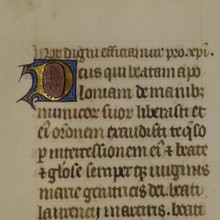 digni efficiamur pro.xpi.
Deus qui beatam apo
loniam de manibꝫ
inimicor suor liberasti et
ei oronem exaudisti te qso
p intercessionem ei & beate
& glose semper qꝫ virginis
marie genitricis dei beati
laurencij martiris. beati